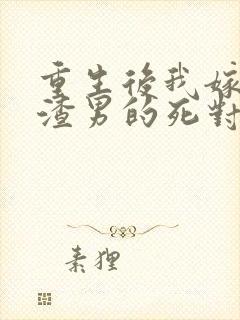 重生後我嫁
渣男的死對
素狸